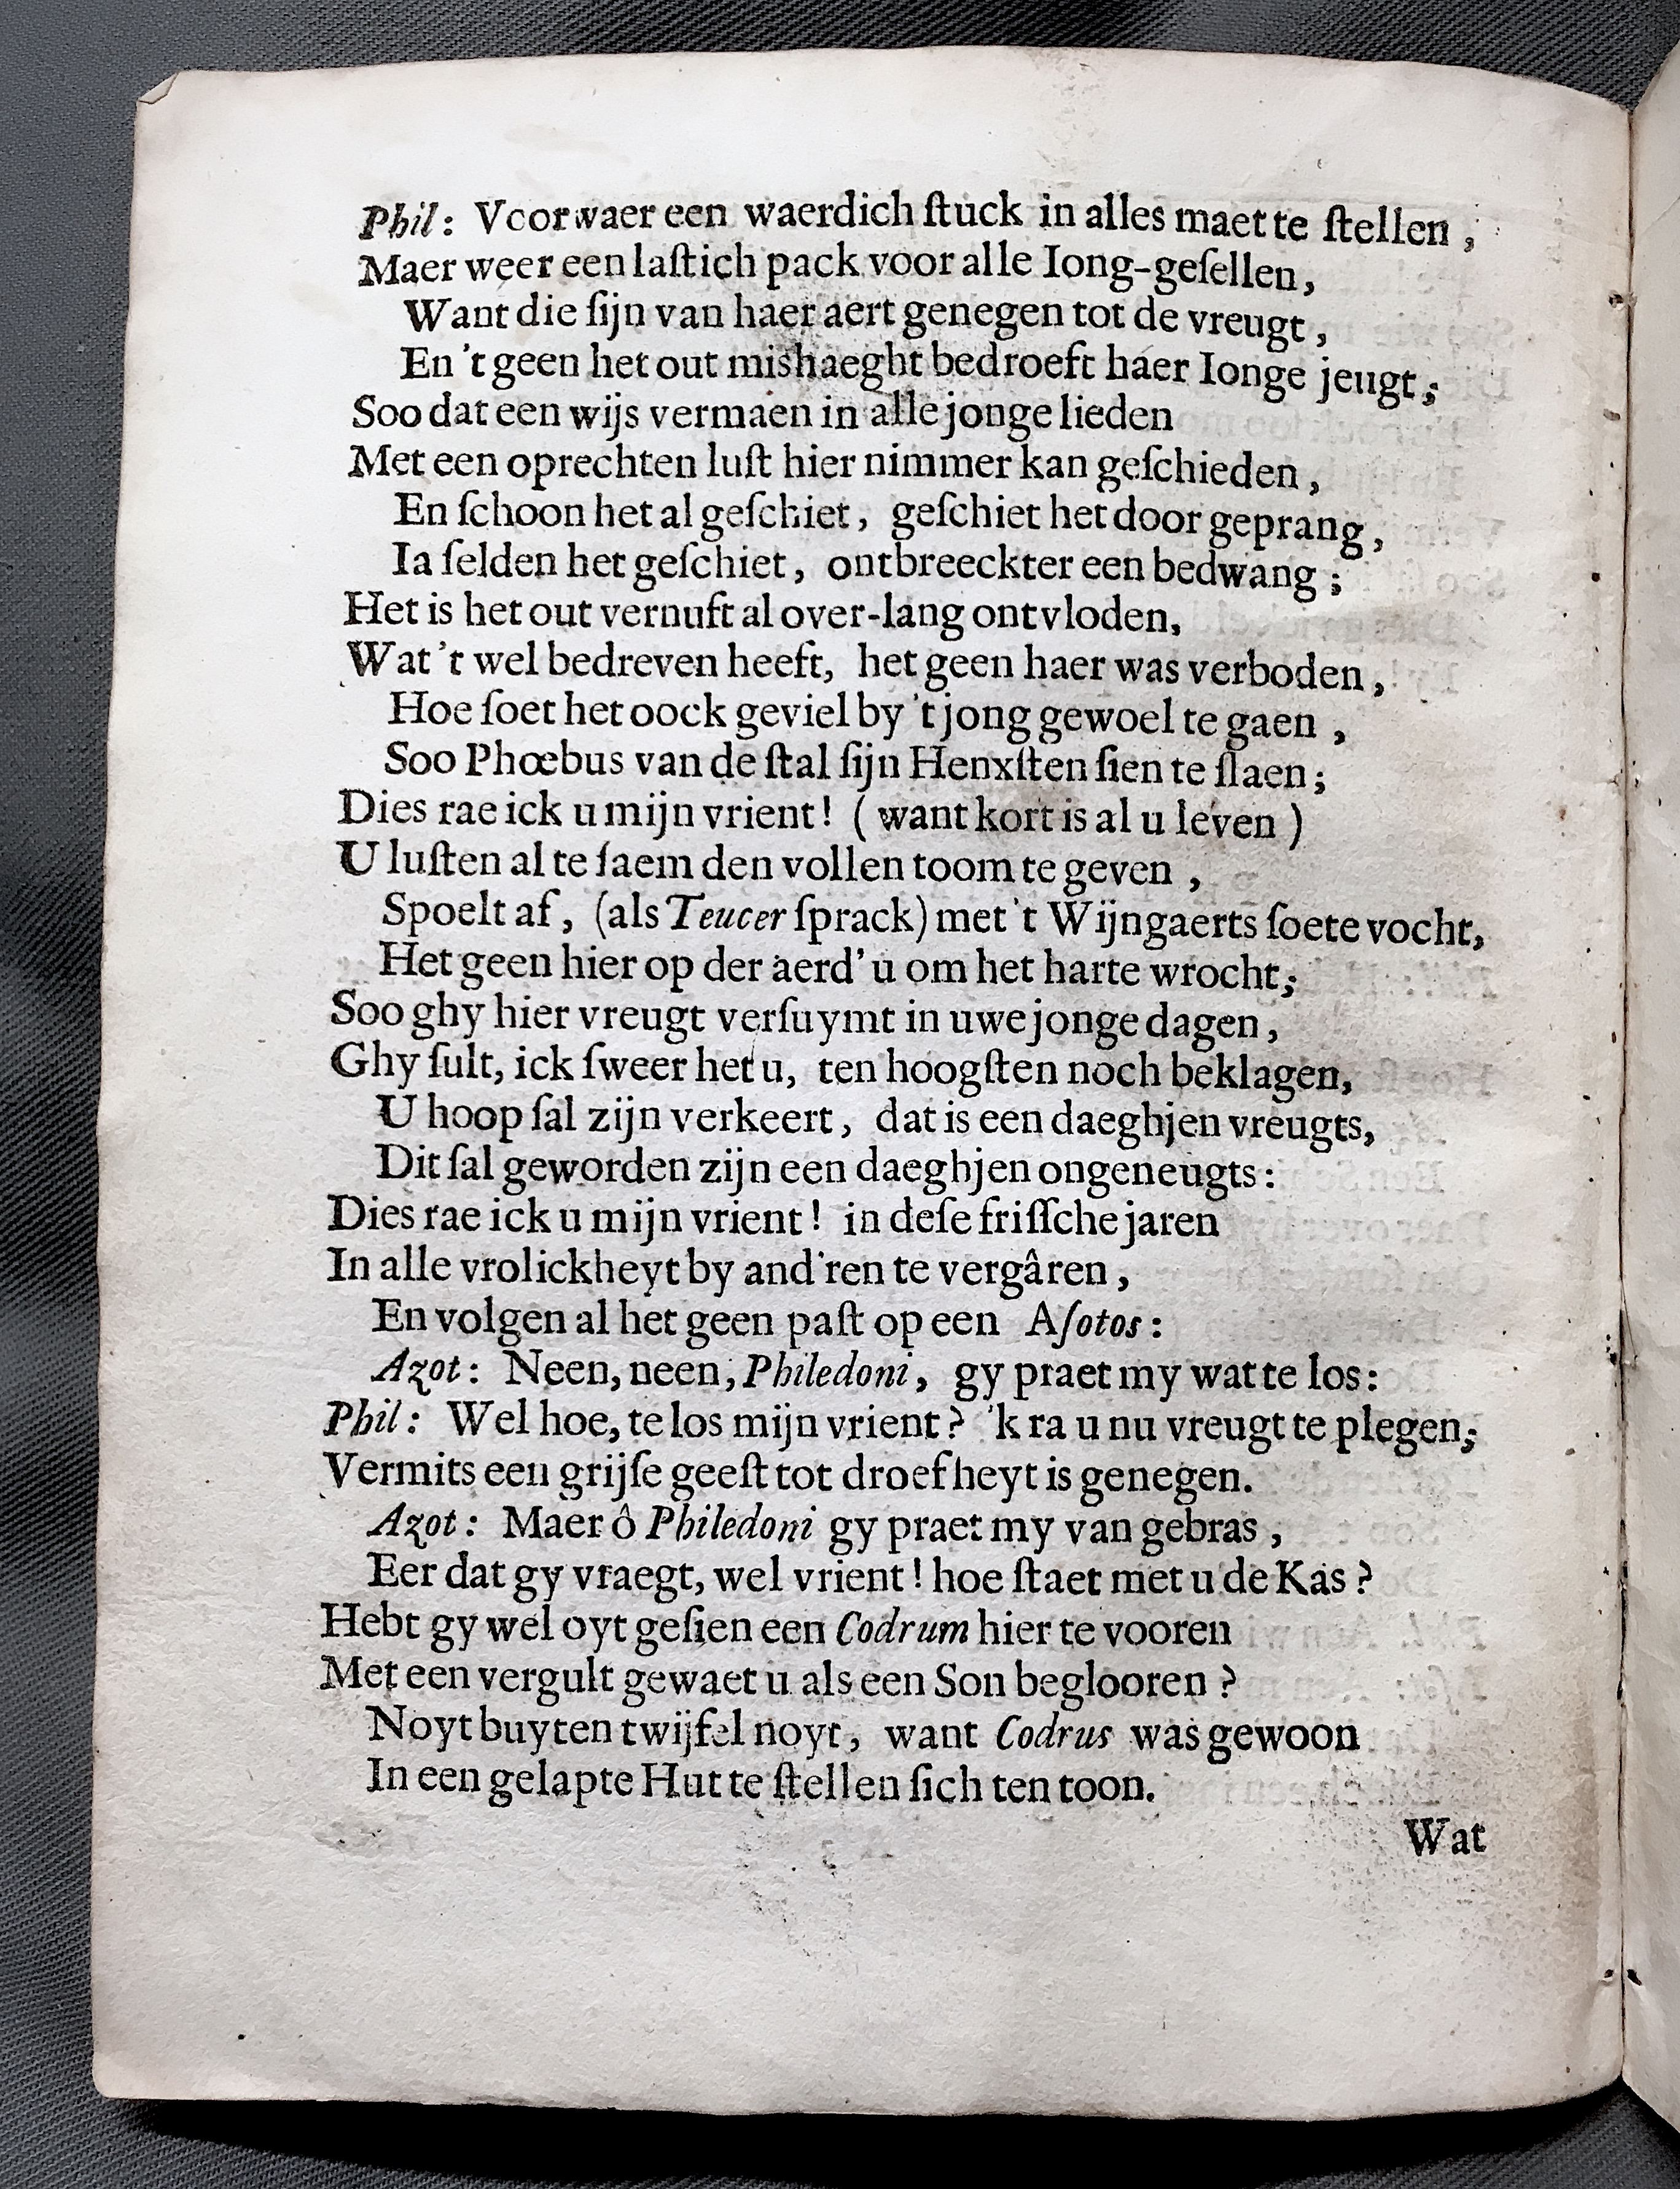 Phil: Voorwaer een waerdich ſtuck in alles maet te ſtellen,
Maer weer een laſtich pack voor alle Iong-geſellen,
Want die ſijn van haer aert genegen tot de vreugt,
En 't geen het out mishaeght bedroeft haer Ionge jeugt;
Soo dat een wijs vermaen in alle jonge lieden
Met een oprechten luſt hier nimmer kan geſchieden,
En ſchoon het al geſchiet, geſchiet het door geprang,
Ia ſelden het geſchiet, ontbreeckter een bedwang;
Het is het out vernuft al over-lang ontvloden,
Wat 't wel bedreven heeft, het geen haer was verboden,
Hoe ſoet het oock geviel by 't jong gewoel te gaen,
Soo Phœbus van de ſtal ſijn Henxſten ſien te ſlaen;
Dies rae ick u mijn vrient! (want kort is al u leven)
U luſten al te ſaem den vollen toom te geven,
Spoelt af, (als Teucer ſprack) met 't Wijngaerts ſoete vocht,
Het geen hier op der aerd' u om het harte wrocht;
Soo ghy hier vreugt verſuymt in uwe jonge dagen,
Ghy ſult, ick ſweer het u, ten hoogſten noch beklagen,
U hoop ſal zijn verkeert, dat is een daeghjen vreugts,
Dit ſal geworden zijn een daeghjen ongeneugts:
Dies rae ick u mijn vrient! in deſe friſſche jaren
In alle vrolickheyt by and'ren te vergâren,
En volgen al het geen paſt op een Aſotos:
Azot: Neen, neen, Philedoni, gy praet my wat te los:
Phil: Wel hoe, te los mijn vrient? 'k ra u nu vreugt te plegen;
Vermits een grijſe geeſt tot droefheyt is genegen.
Azot: Maer ô Philedoni gy praet my van gebras,
Eer dat gy vraegt, wel vrient! hoe ſtaet met u de Kas?
Hebt gy wel oyt geſien een Codrum hier te vooren
Met een vergult gewaet u als een Son beglooren?
Noyt buyten twijfel noyt, want Codrus was gewoon
In een gelapte Hut te ſtellen ſich ten toon.
Wat